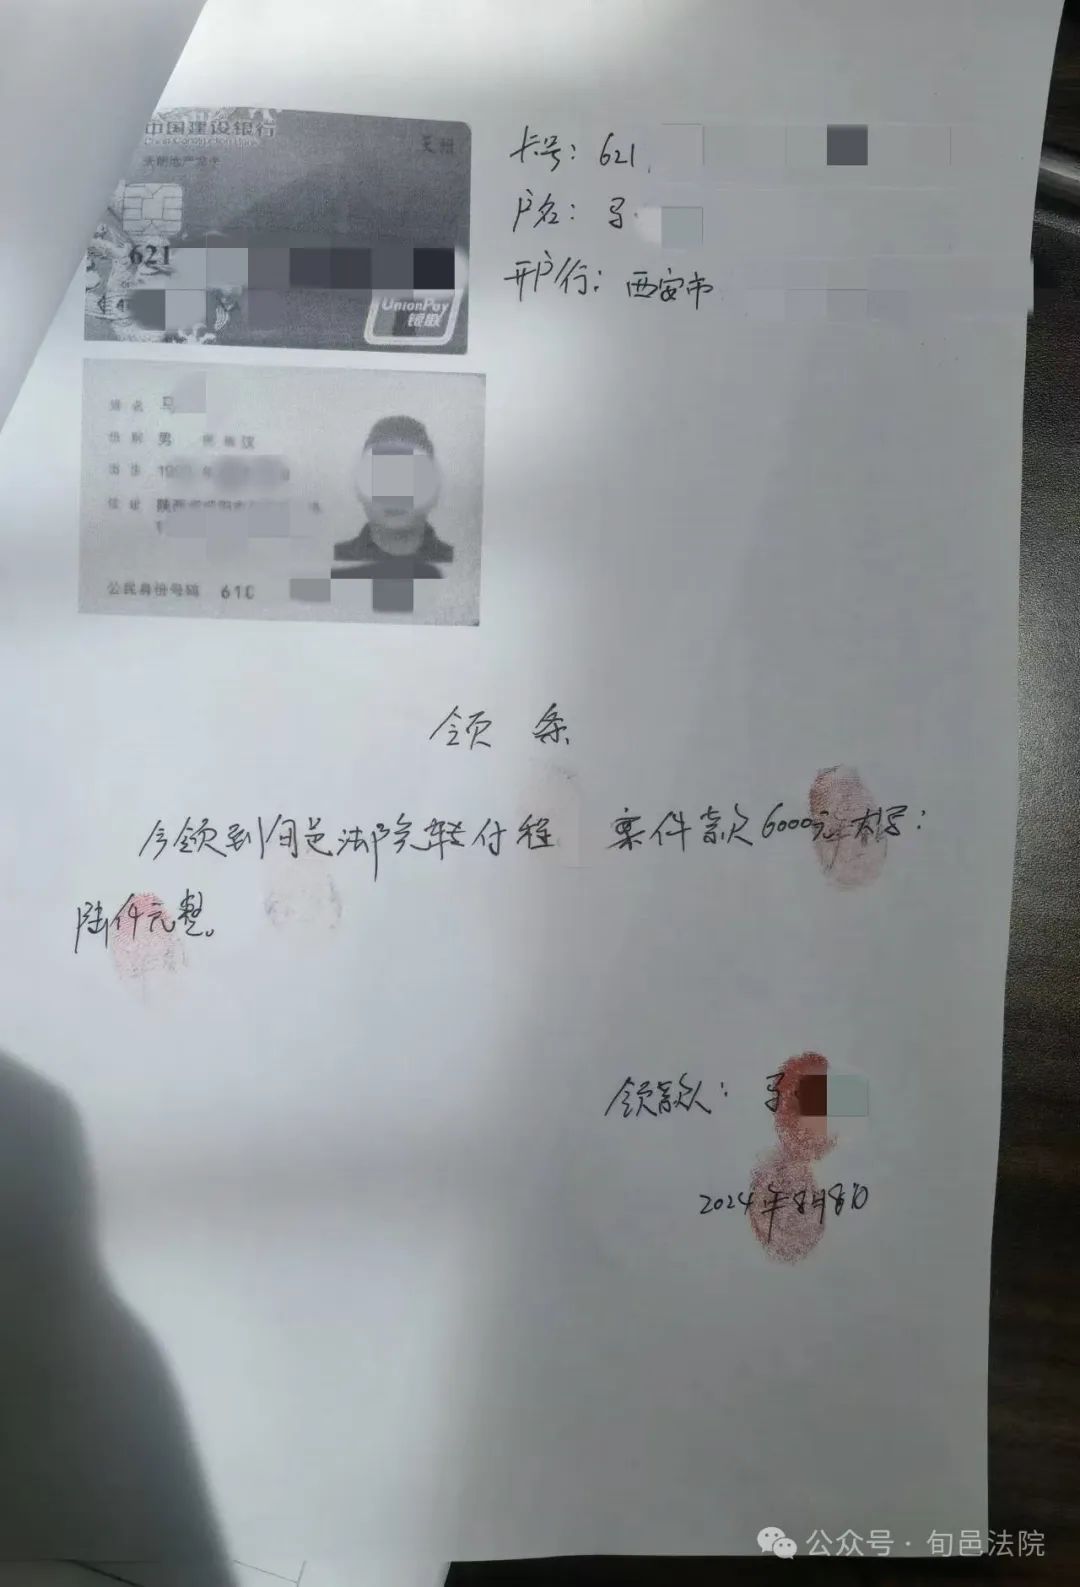 中国建设银行
China Construction Bank
621
UnionPay
银联
卡号：621
户名：马
开户行：西安市
姓名 马
性别 男 民族 汉
出生 19 年
住址 陕西省咸阳市
公民身份号码 610
领 条
今领到旬邑法院转付程 案件款6000元 大写：
陆仟元整。
领款人：马
2024年8月8日
公众号·旬邑法院